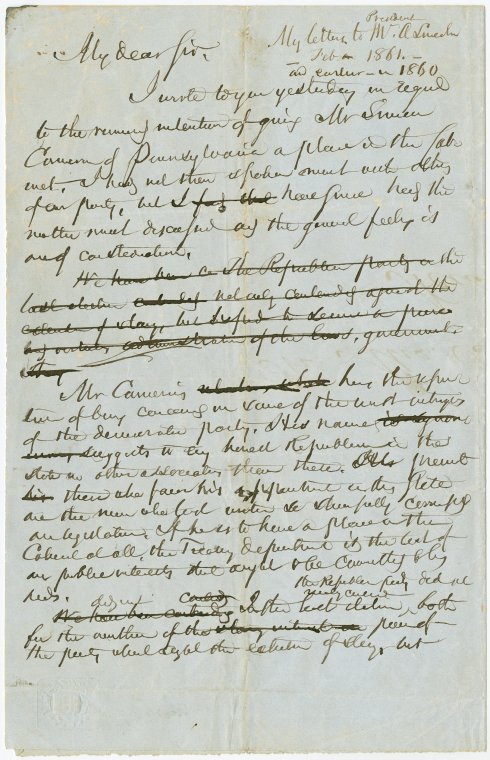 President
My letters to Mr. A Lincoln
Feb 1861.
and earlier in 1860
My dear Sir,
I wrote to you yesterday in regard
to the rumored intention of giving Mr Simon
Cameron of Pennsylvania a place in the Cabi
net. I had not then spoken much with others
of our party, but I have since heard the
matter much discussed and the general feeling is
one of consternation.
We have been in the Republican party in the
last election not only contending against the
extension of slavery, but to secure a pure
administration of the laws, government
Mr. Cameron has the repu
tation of being concerned in some of the worst intrigues
of the democratic party. His name
suggests to any honest Republican in the
State no other associations than these. His
those who favor his appointment in this State
are the men who last winter so shamefully corrupted
our legislature. If he is to have a place in the
Cabinet at all, the Treasury department is the last of
our public interests that ought to be committed to his
hands.
the Republican party did not
We have been contending in the last election, both
for the
the party which sought the extension of slavery, but